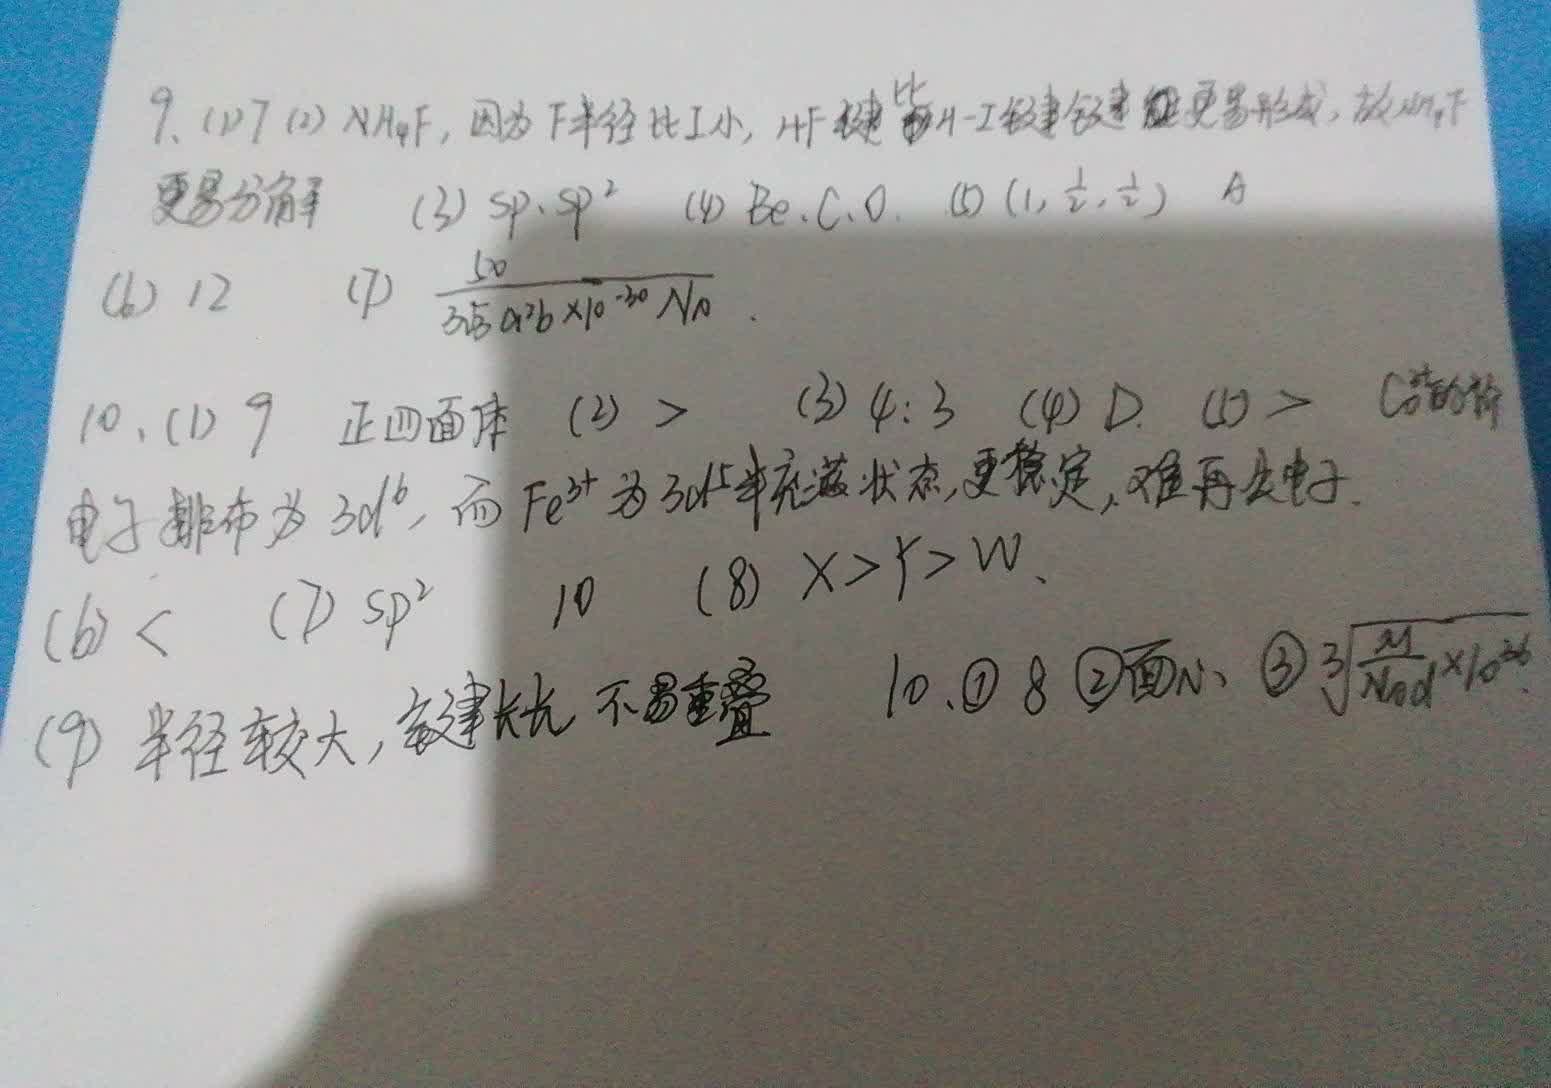 9、(1)7 (2) NH₄F，因为F半径比I小，HF键比H-I键键更易形成，故NH₄F
更易分解 (3) sp、sp² (4) Be、C、O. (5) (1, 1/2, 1/2) A
(6) 12 (7) 50/(3√3a²b×10⁻³⁰ NA).
10、(1) 9 正四面体 (2) > (3) 4:3 (4) D. (5) > Co³⁺的价
电子排布为3d⁶，而Fe³⁺为3d⁵半充满状态，更稳定，难再失电子.
(6) < (7) sp² 10 (8) X>Y>W、
(9) 半径较大，键长长 不易重叠 10、① 8 ②面心、 ③ ³√(M/(NAd)×10³⁰).